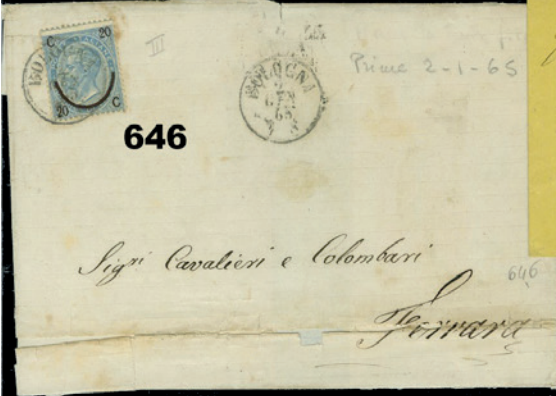 C 20
20 C
III
BOLOGNA
2
GEN
65
Prime 2-1-65
646
Sigri Cavalieri e Colombari
646
Ferrara